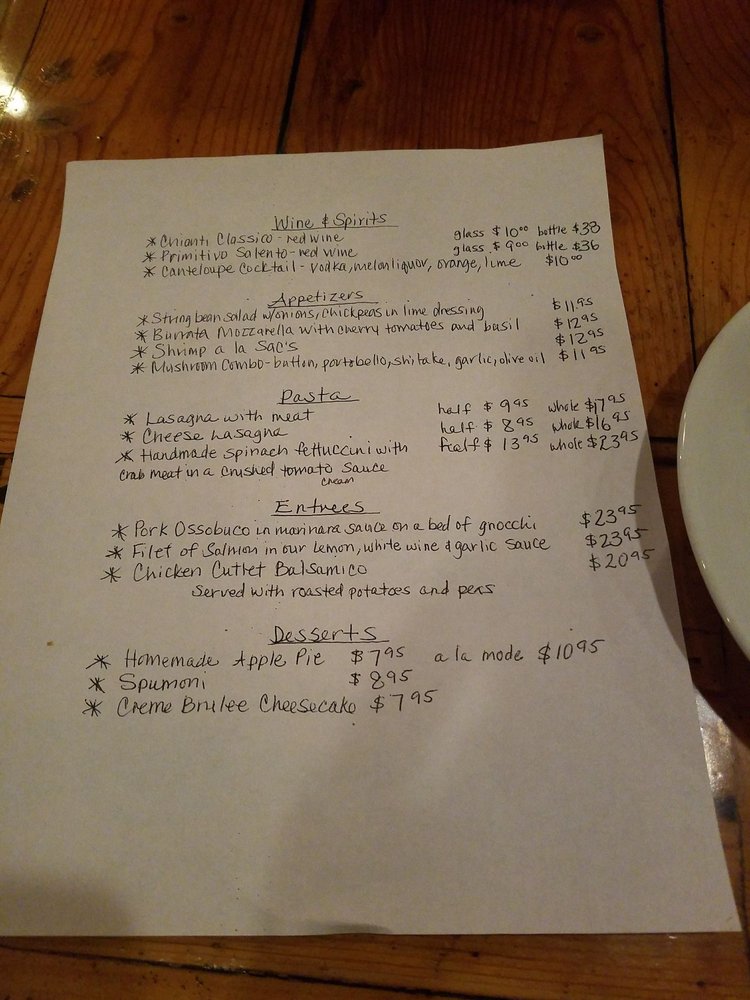 Wine & Spirits
* Chianti Classico - red wine glass $10.00 bottle $38
* Primitivo Salento - red wine glass $9.00 bottle $36
* Canteloupe Cocktail - vodka, melon liquor, orange, lime $10.00
Appetizers
* String bean salad w/onions, chickpeas in lime dressing $11.95
* Burrata Mozzarella with cherry tomatoes and basil $12.95
* Shrimp a la Sac's $12.95
* Mushroom Combo - button, portobello, shitake, garlic, olive oil $11.95
Pasta
* Lasagna with meat half $9.95 whole $17.95
* Cheese Lasagna half $8.95 whole $16.95
* Handmade spinach fettuccini with half $13.95 whole $23.95
crab meat in a crushed tomato sauce
cream
Entrees
* Pork Ossobuco in marinara sauce on a bed of gnocchi $23.95
* Filet of Salmon in our lemon, white wine & garlic sauce $23.95
* Chicken Cutlet Balsamico $20.95
served with roasted potatoes and peas
Desserts
* Homemade Apple Pie $7.95 a la mode $10.95
* Spumoni $8.95
* Creme Brulee Cheesecake $7.95